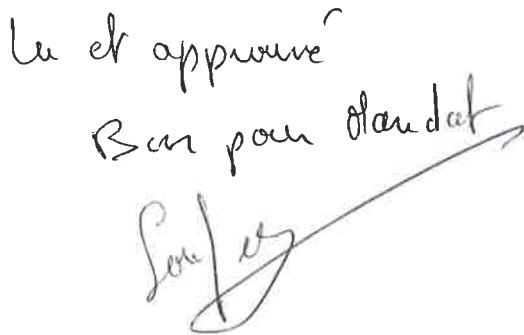 Lu et approuvé
Bon pour Mandat